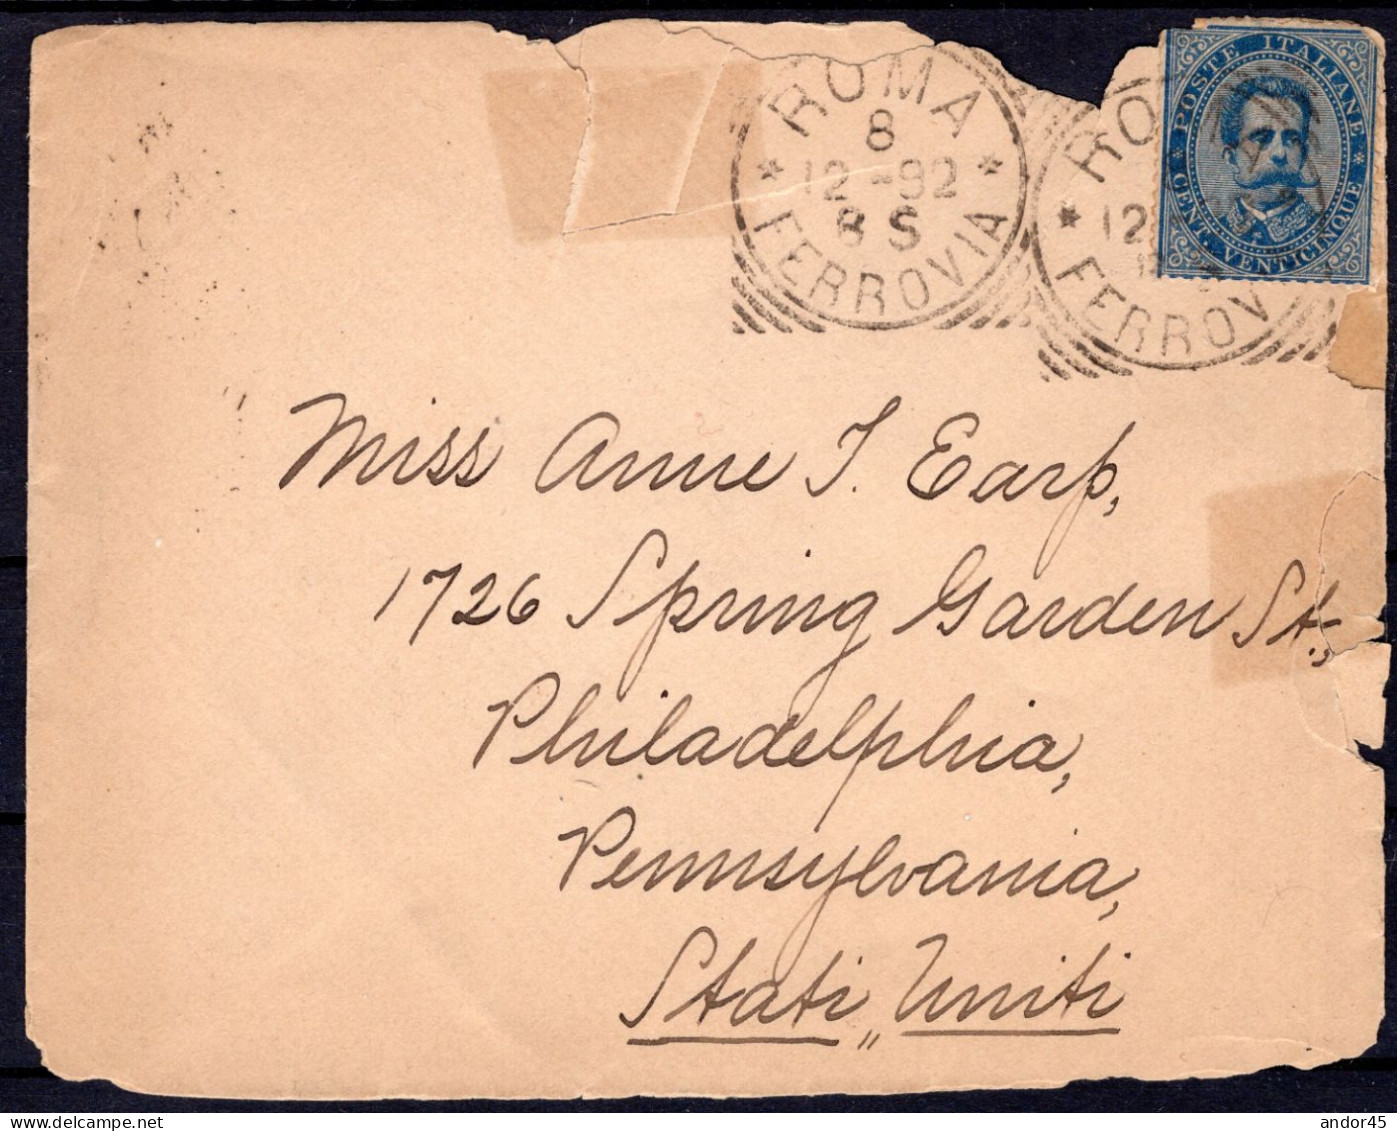 ROMA
8
12 -92
8 S
* FERROVIA *
RO
12
* FERROV
* POSTE ITALIANE *
CENT. VENTICINQUE
Miss Anne I. Earp,
1726 Spring Garden St.,
Philadelphia,
Pennsylvania,
Stati Uniti
andor45